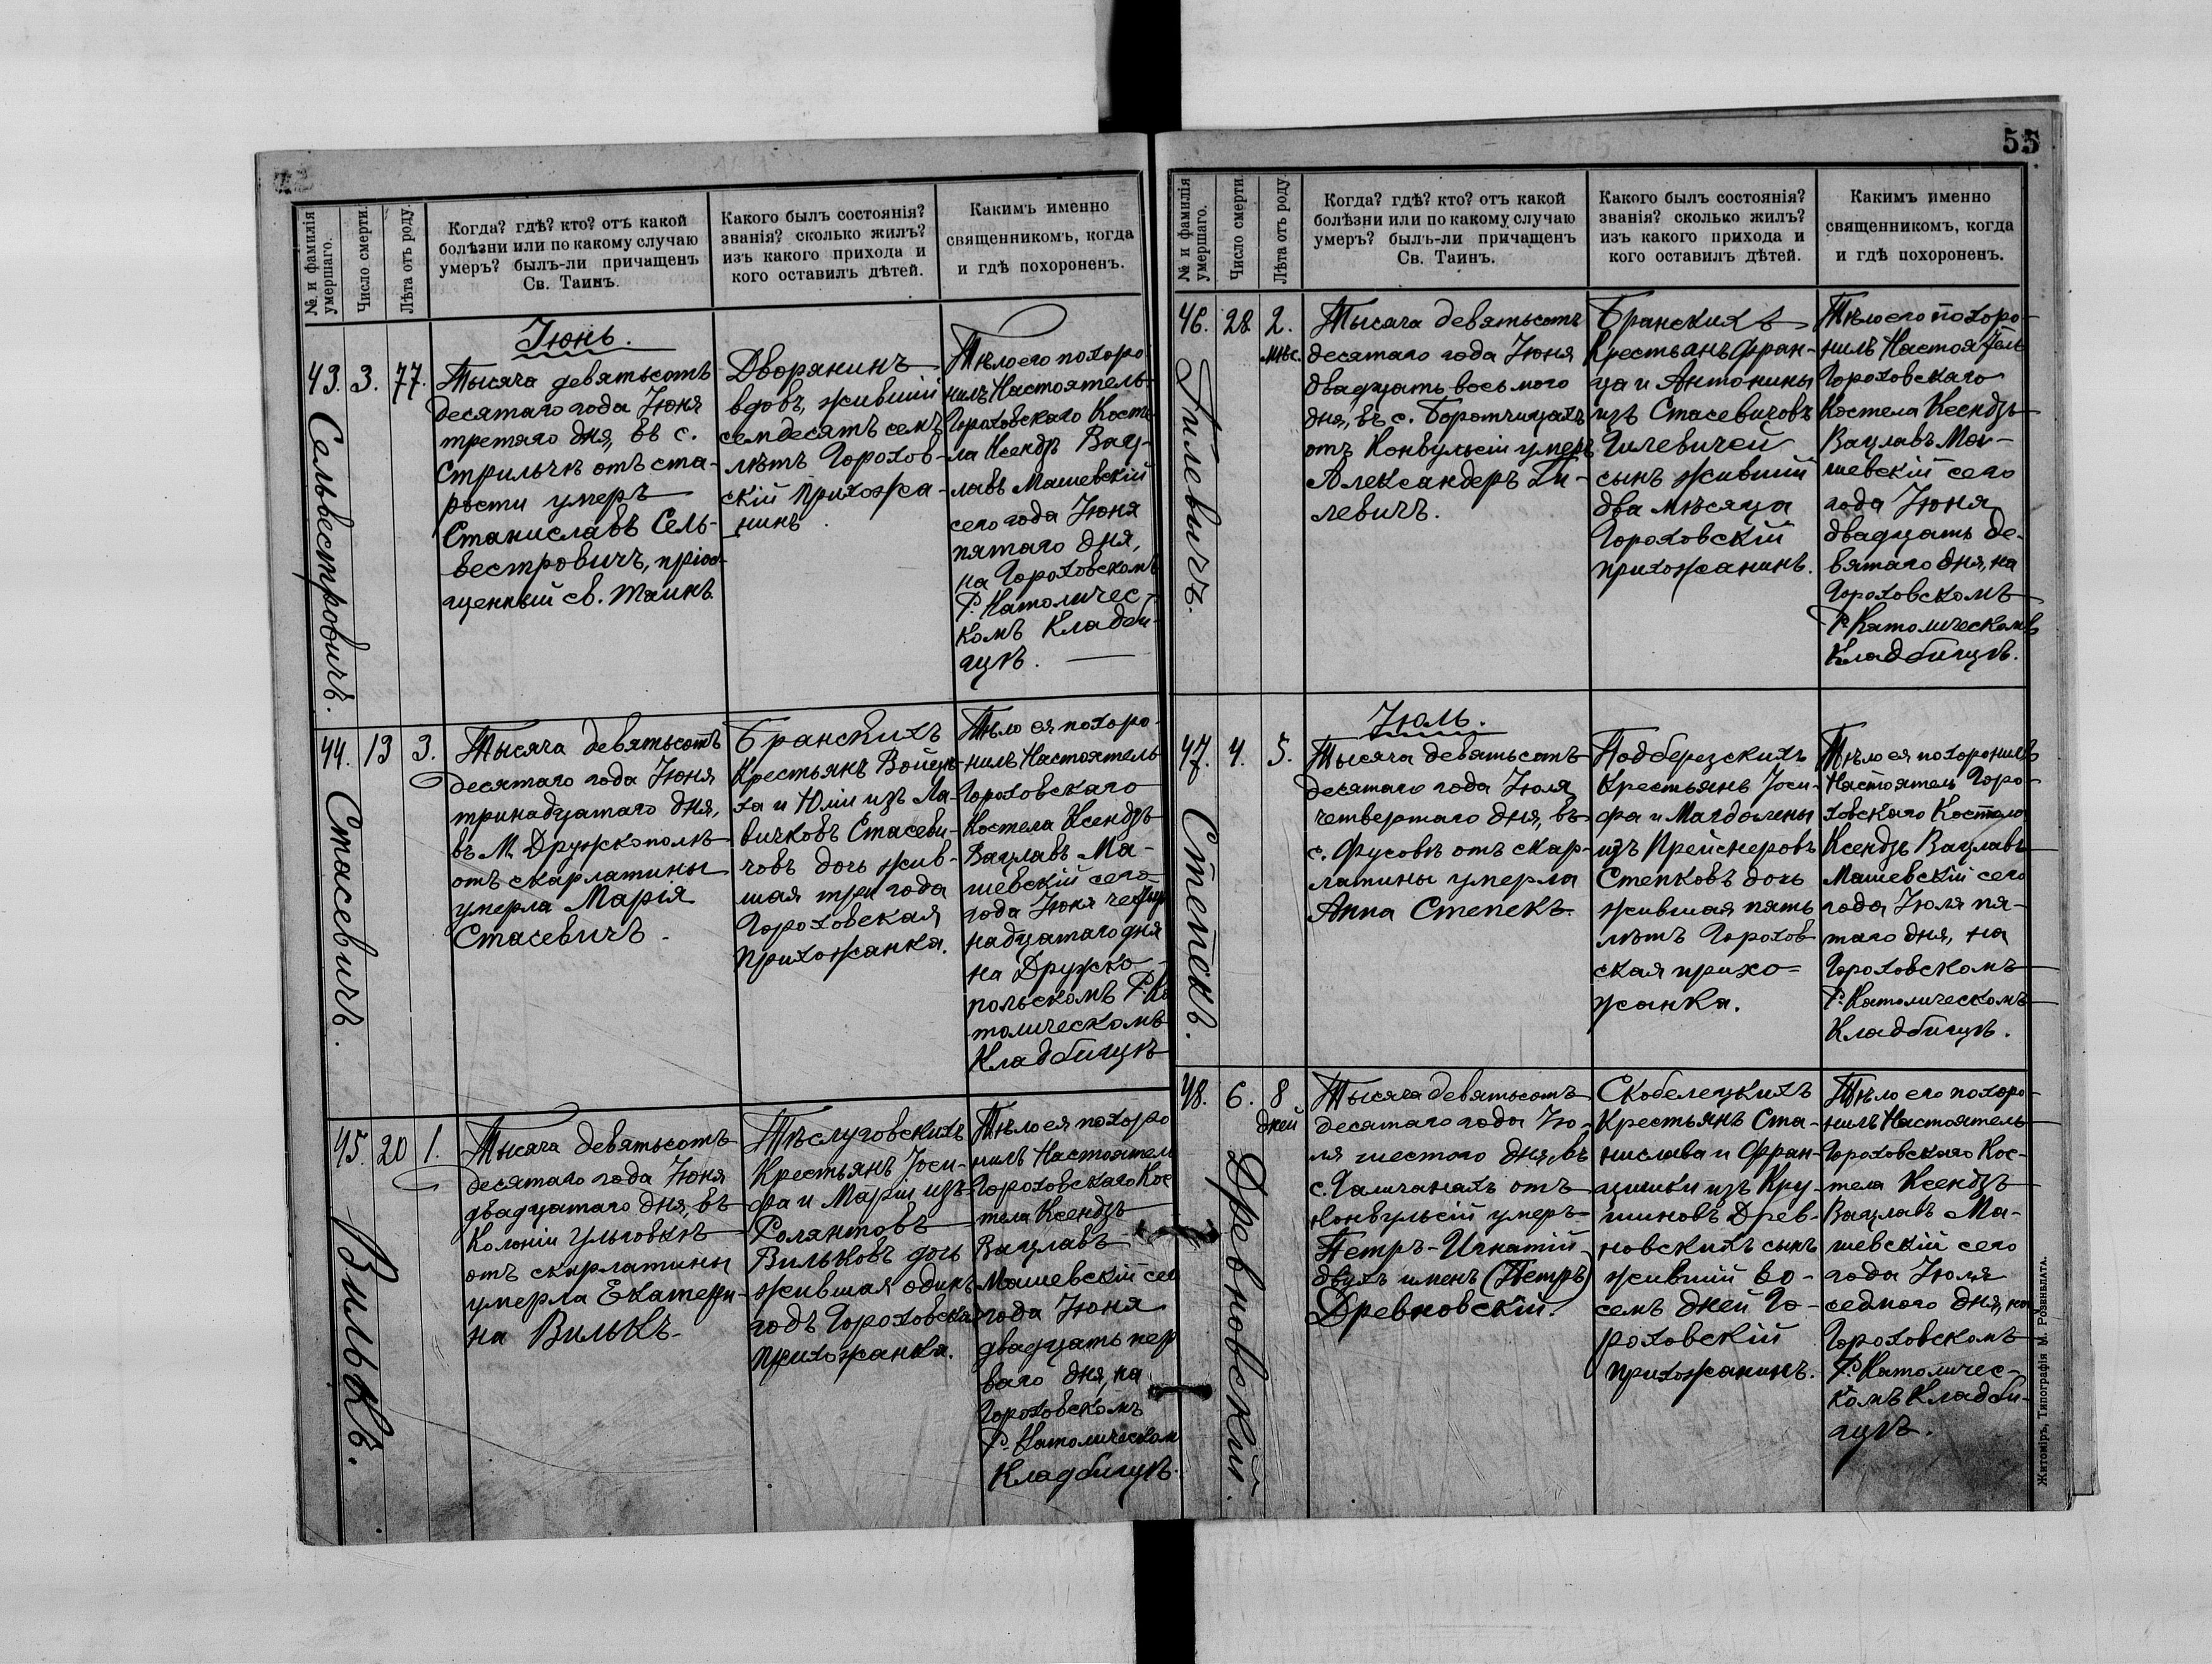 55
№. и фамилія умершаго.
Число смерти.
Лѣта отъ роду.
Когда? гдѣ? кто? отъ какой
болѣзни или по какому случаю
умеръ? былъ-ли причащенъ
Св. Таинъ.
Какого былъ состоянія?
званія? сколько жилъ?
изъ какого прихода и
кого оставилъ дѣтей.
Какимъ именно
священникомъ, когда
и гдѣ похороненъ.
Іюнь.
43.
Сельвестровичъ.
3.
77.
Тысяча девятьсотъ
десятаго года Іюня
третяго дня, въ с.
Стрильчѣ отъ ста-
рости умеръ
Станиславъ Сель-
вестровичъ, пріоб-
щенный св. Таинъ.
Дворянинъ
вдовъ, жившій
семдесятъ семъ
лѣтъ Горохов-
скій прихожа-
нинъ.
Тѣло его похоро
нилъ Настоятель
Гороховскаго Косте-
ла Ксендзъ Вац-
лавъ Машевскій
сего года Іюня
пятаго дня,
на Гороховскомъ
Р. Католичес-
комъ Кладби-
щѣ.
44.
Стасевичъ.
13
3.
Тысяча девятьсотъ
десятаго года Іюня
тринадцатаго дня,
въ М. Дружкополѣ
отъ скарлатины
умерла Марія
Стасевичъ.
Бранскихъ
Крестьянъ Войце-
ха и Юліи изъ Ла-
вичковъ Стасеви-
човъ дочь жив-
шая три года
Гороховская
прихожанка.
Тѣло ея похоро-
нилъ Настоятель
Гороховскаго
Костела Ксендзъ
Вацлавъ Ма-
шевскій сего
года Іюня четыр
надцатаго дня
на Дружко-
польскомъ Р. Ка
толическомъ
Кладбищѣ
45.
Вилькъ.
20
1.
Тысяча девятьсотъ
десятаго года Іюня
двадцатаго дня, въ
Колоніи Ульговкѣ
отъ скарлатины
умерла Екатери-
на Вилькъ.
Тѣслуговскихъ
Крестьянъ Іоси-
фа и Маріи изъ
Ролянтовъ
Вильковъ дочь
жившая одинъ
годъ Гороховская
прихожанка.
Тѣло ея похоро
нилъ Настоятель
Гороховскаго Кос
тела Ксендзъ
Вацлавъ
Машевскій сего
года Іюня
двадцать пер
ваго дня, на
Гороховскомъ
Р. Католическом
Кладбищѣ.
№ и фамилія умершаго.
Число смерти.
Лѣта отъ роду.
Когда? гдѣ? кто? отъ какой
болѣзни или по какому случаю
умеръ? былъ-ли причащенъ
Св. Таинъ.
Какого былъ состоянія?
званія? сколько жилъ?
изъ какого прихода и
кого оставилъ дѣтей.
Какимъ именно
священникомъ, когда
и гдѣ похороненъ.
46.
Гилевичъ.
28
2.
мѣс.
Тысяча девятьсотъ
десятаго года Іюня
двадцать восьмого
дня, въ с. Боротчицахъ
отъ Конвульсій умеръ
Александеръ Ги-
левичъ.
Бранскихъ
Крестьянъ Фран-
ца и Антонины
изъ Стасевичовъ
Гилевичей
сынъ жившій
два мѣсяца
Гороховскій
прихожанинъ.
Тѣло его похоро-
нилъ Настоятель
Гороховскаго
Костела Ксендзъ
Вацлавъ Ма-
шевскій сего
года Іюня
двадцать де-
вятаго дня, на
Гороховскомъ
Р. Католическомъ
Кладбищѣ.
Іюль.
47.
Степекъ.
4.
5.
Тысяча девятьсотъ
десятаго года Іюля
четвертаго дня, въ
с. Фусовѣ отъ скар-
латины умерла
Анна Степекъ.
Подберезскихъ
Крестьянъ Іоси-
фа и Магдалены
изъ Прейснеровъ
Степковъ дочь
жившая пять
лѣтъ Горохов
ская прихо=
жанка.
Тѣло ея похоронилъ
Настоятель Горо-
ховскаго Костела
Ксендзъ Вацлавъ
Машевскій сего
года Іюля пя-
таго дня, на
Гороховскомъ
Р. Католическомъ
Кладбищѣ.
48.
Древновскій.
6.
8
дней
Тысяча девятьсотъ
десятаго года Ію-
ля шестого дня, въ
с. Галичанахъ отъ
Конвульсій умеръ
Петръ-Игнатій
двухъ именъ (Петръ)
Древновскій.
Скобелецкихъ
Крестьянъ Ста-
нислава и Фран-
цишки изъ Кру-
шиновъ Древ-
новскихъ сынъ
жившій во-
семъ дней Го-
роховскій
прихожанинъ.
Тѣло его похоро-
нилъ Настоятель
Гороховскаго Кос-
тела Ксендзъ
Вацлавъ Ма-
шевскій сего
года Іюля
седмого дня, на
Гороховскомъ
Р. Католичес-
комъ Кладби-
щѣ.
Житоміръ, Типографія М. Розенблата.